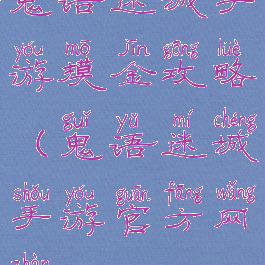 鬼语迷城手
yóu mō jīn gōng lüè
游摸金攻略
guǐ yǔ mí chéng
(鬼语迷城
shǒu yóu guān fāng wǎng
手游官方网
zhàn